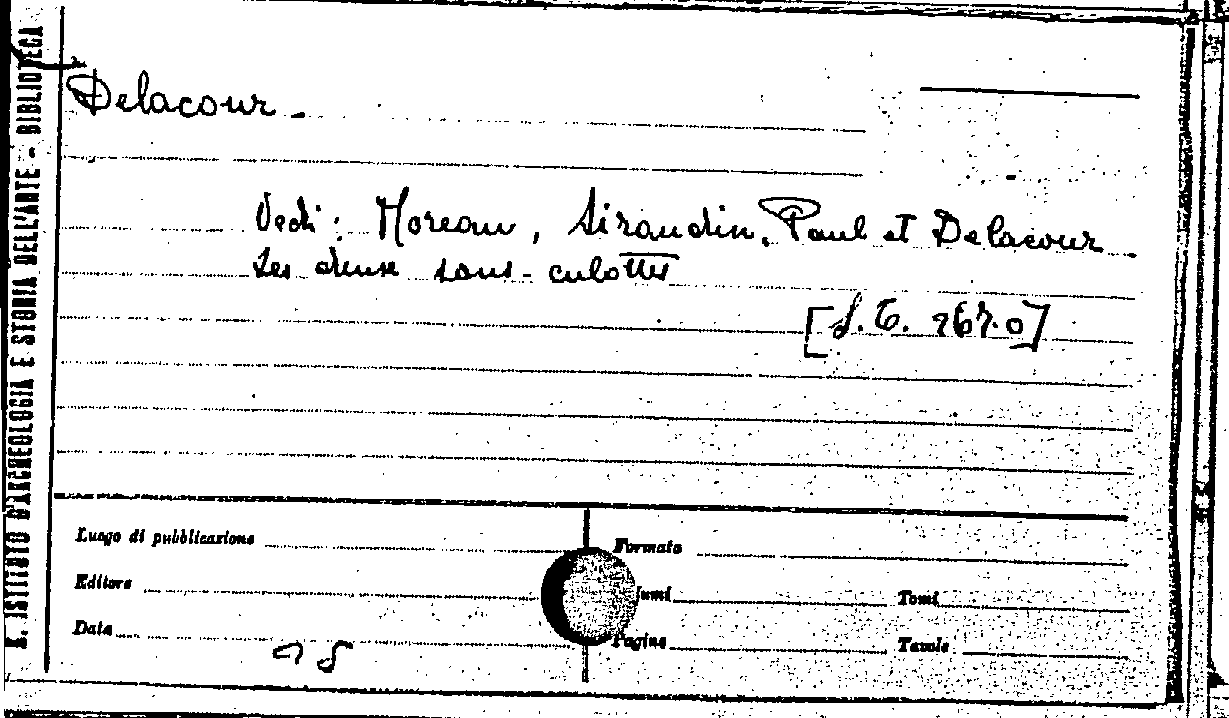 R. ISTITUTO D'ARCHEOLOGIA E STORIA DELL'ARTE - BIBLIOTECA
Delacour.
Vedi: Moreau, Siraudin, Paul et Delacour
Les deux sans-culottes
Luogo di pubblicazione
Formato
Editore
Tomi
Data
Pagine
Tavole